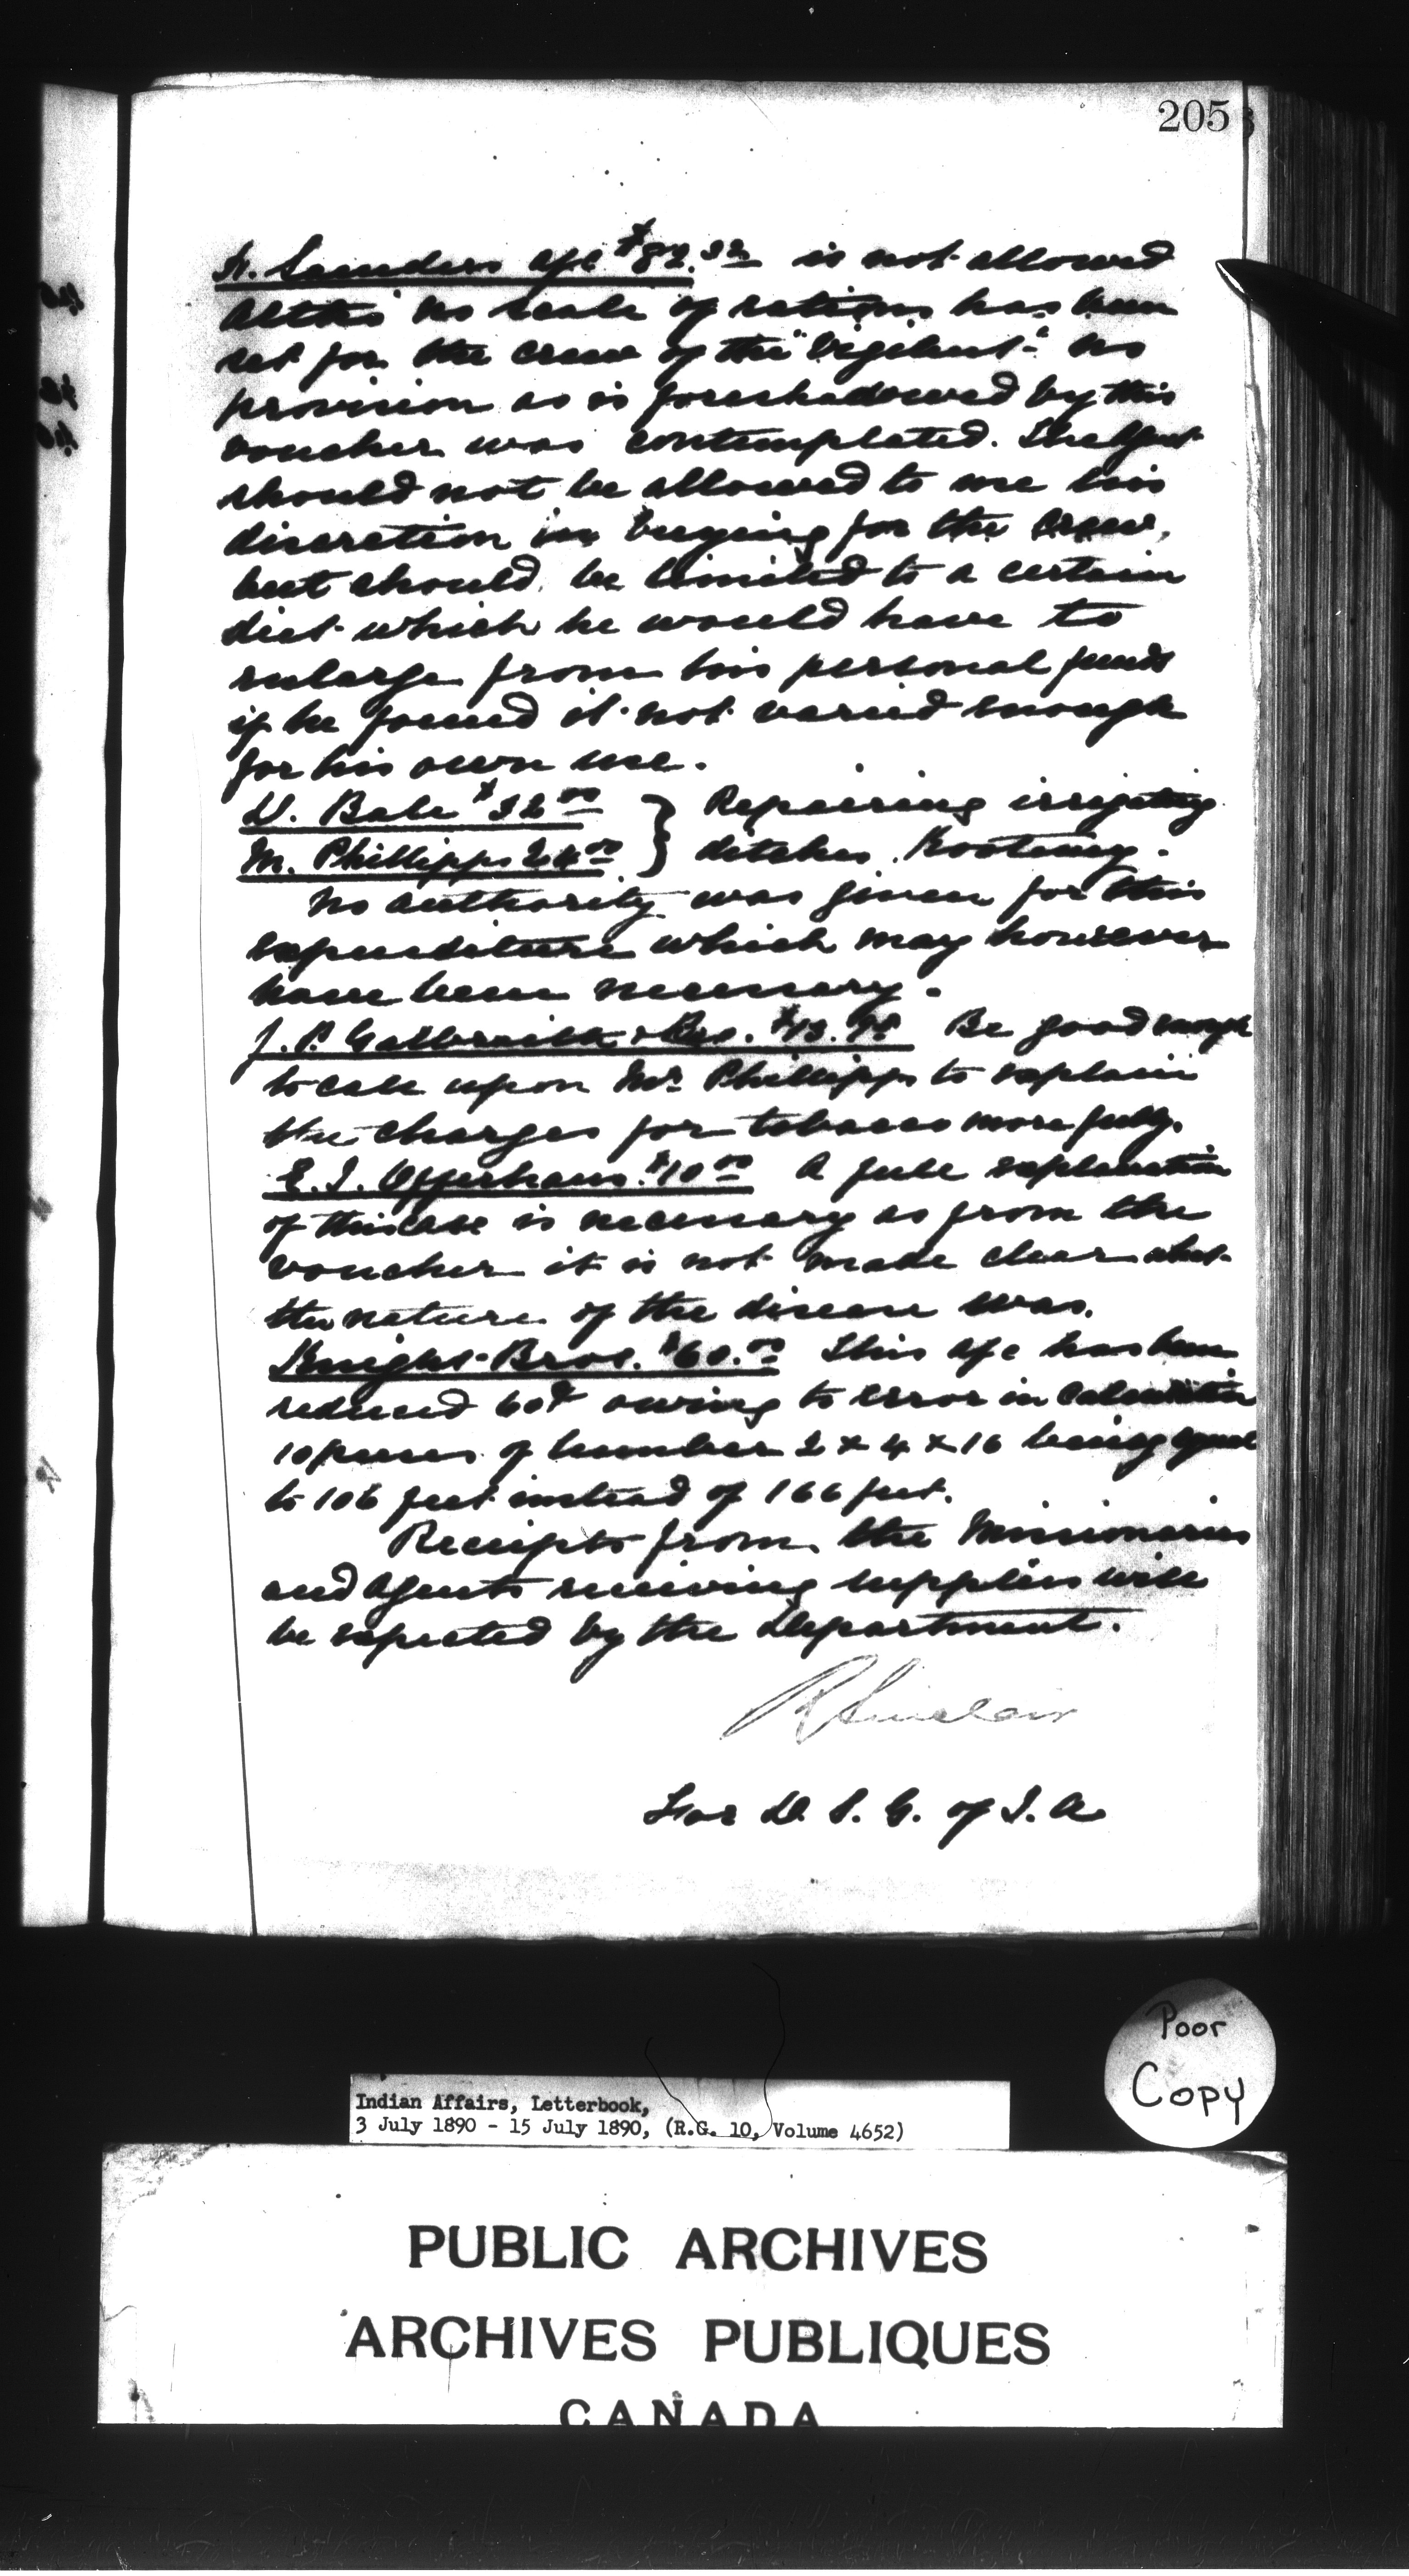 205
H. Saunders a/c $82.32 is not allowed
Altho' no scale of rations has been
set for the crew of the "Vigilant" no
provision as is foreshadowed by this
voucher was contemplated. The Agent
should not be allowed to use his
discretion in buying for the crew,
but should be limited to a certain
diet which he would have to
enlarge from his personal funds
if he found it not varied enough
for his own use.
D. Bale $32.00 } Repairing irrigating
M. Phillipps 24.00 } ditches. Kootenay.
No authority was given for this
expenditure which may however
have been necessary.
J. P. Galbraith & Bro. Be good enough
to call upon Mr Phillipps to explain
the charges for tobacco more fully.
E. I. $10.00 A full explanation
of this case is necessary as from the
voucher it is not made clear what
the nature of the disease was.
Knight Bros. $60.00 This a/c has been
reduced 60¢ owing to error in calculation
10 pieces of lumber 2 x 4 x 16 being equal
to 106 feet instead of 166 feet.
Receipts from the Missionaries
and Agents receiving supplies will
be expected by the Department.
R Sinclair
For D. S. G. of I. A
Poor
Copy
Indian Affairs, Letterbook,
3 July 1890 - 15 July 1890, (R.G. 10, Volume 4652)
PUBLIC ARCHIVES
ARCHIVES PUBLIQUES
CANADA